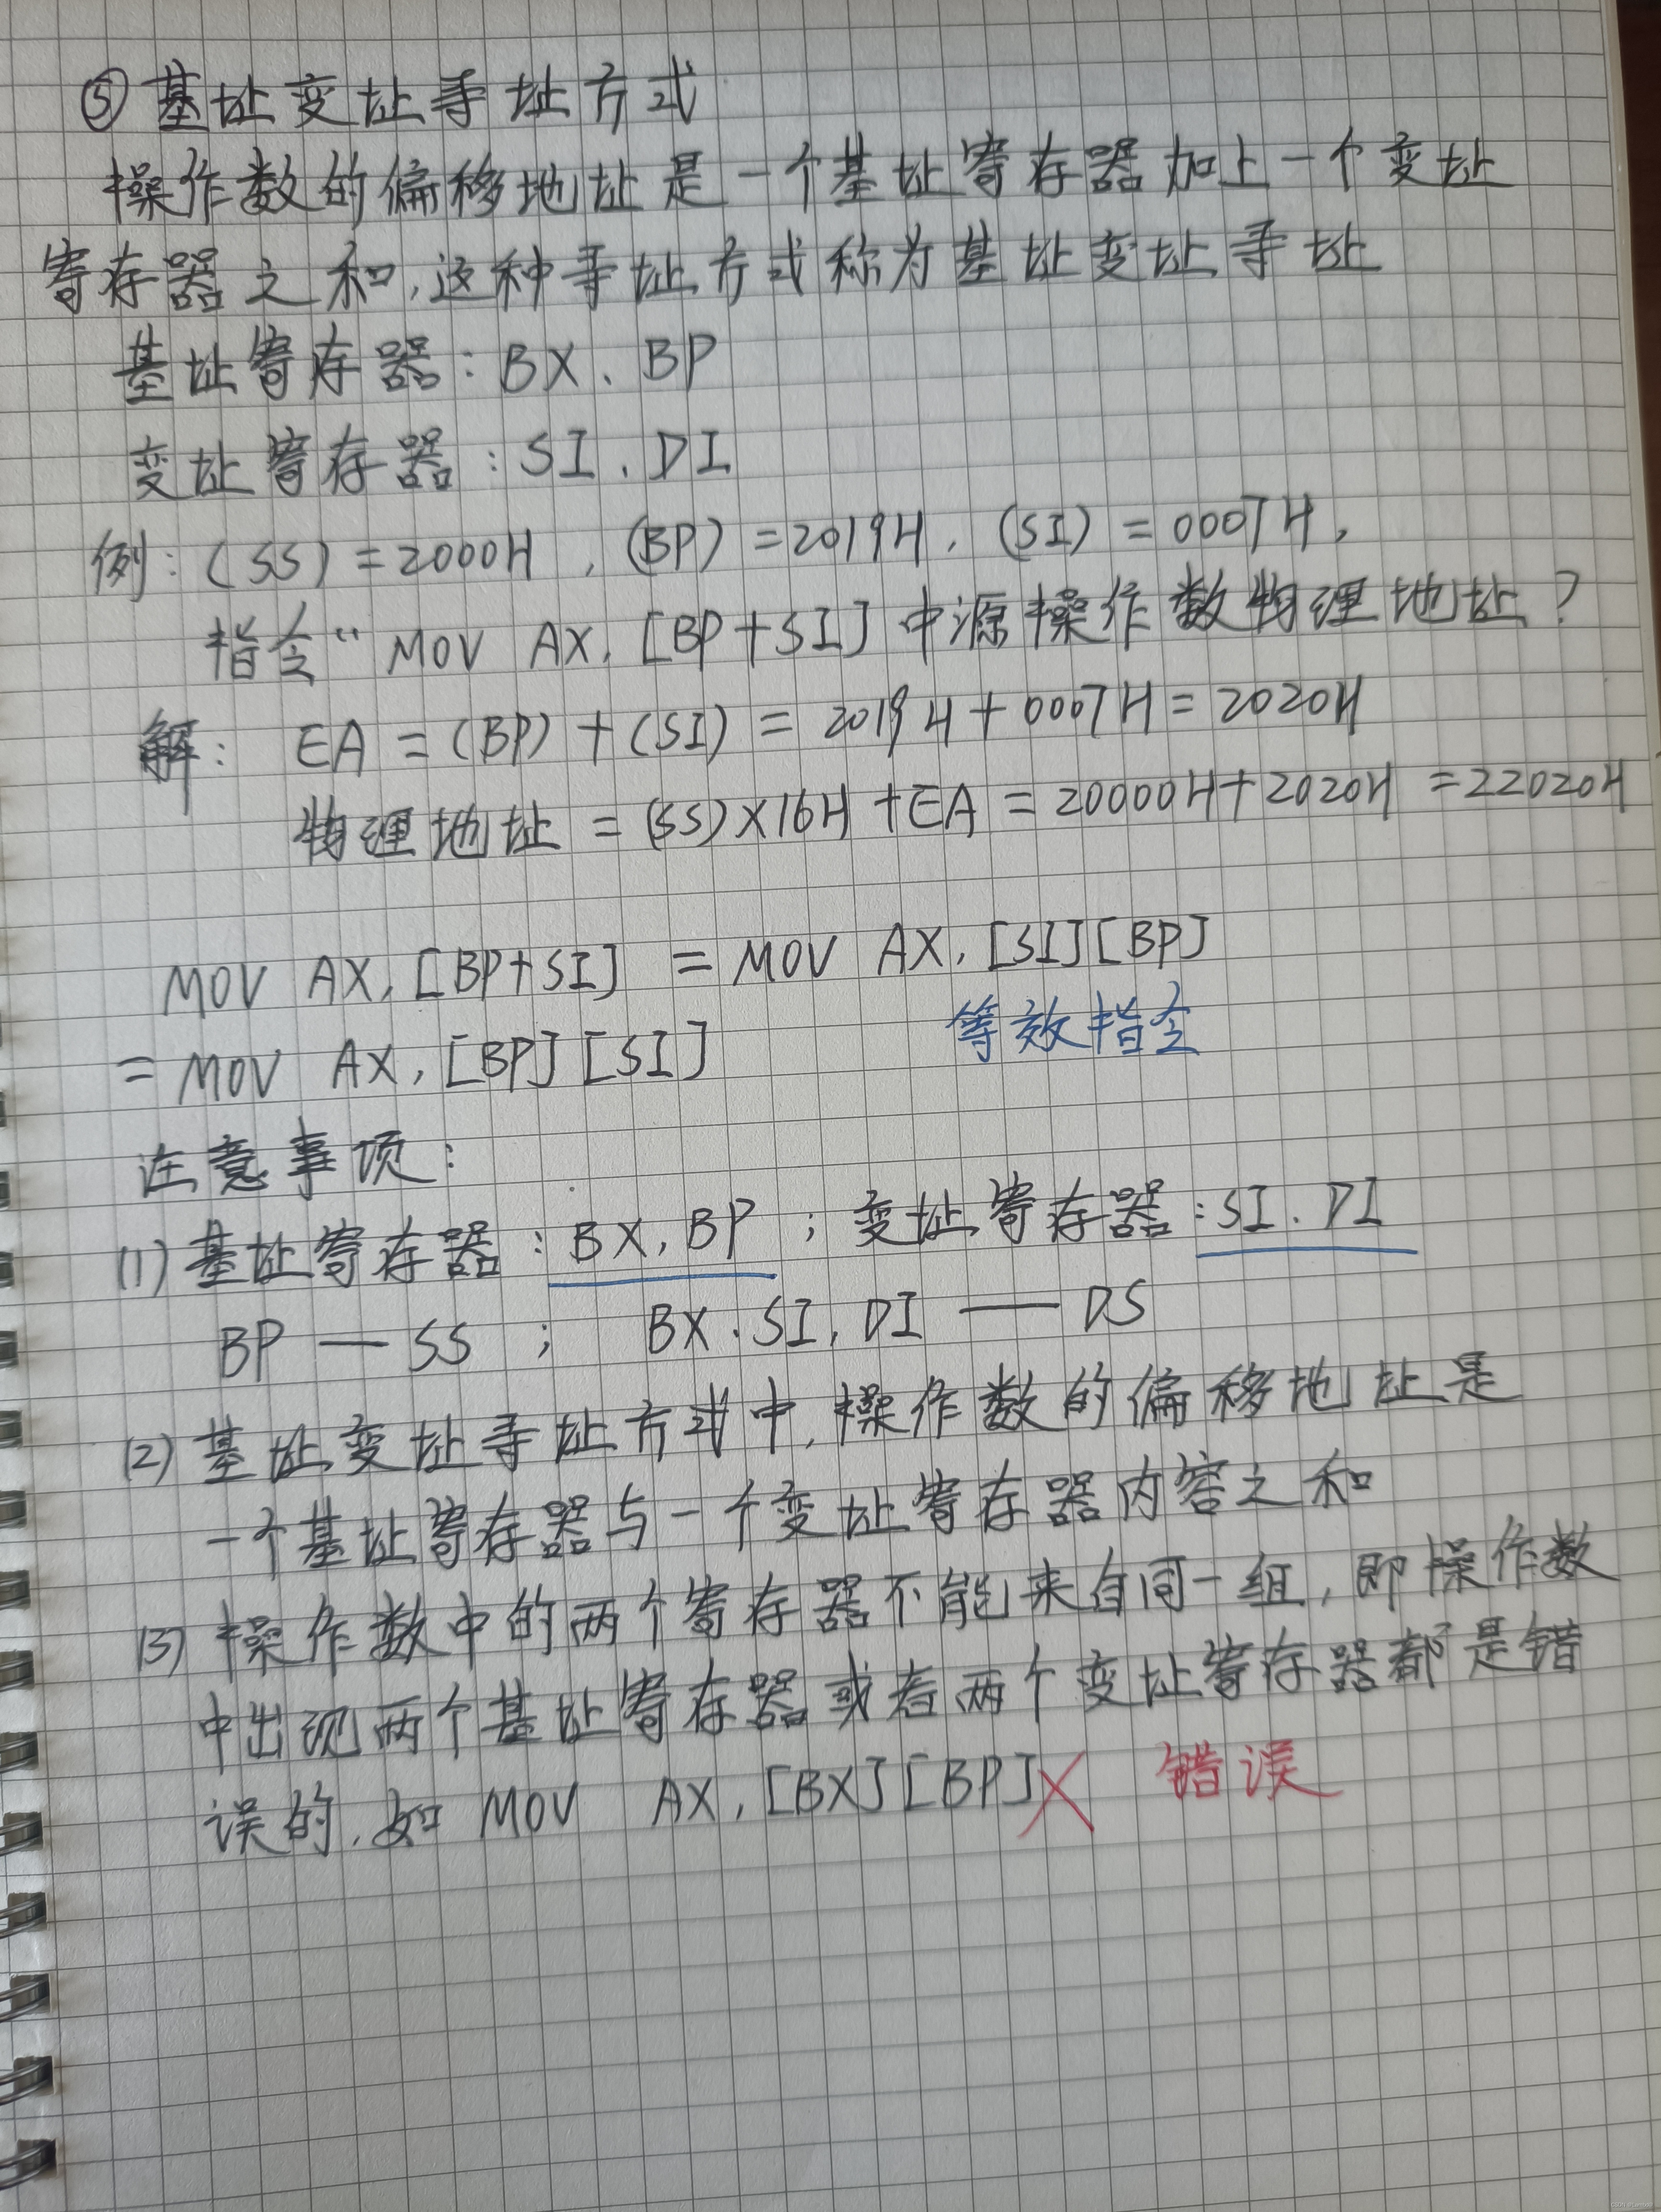 ⑤ 基址变址寻址方式
操作数的偏移地址是一个基址寄存器加上一个变址
寄存器之和,这种寻址方式称为基址变址寻址
基址寄存器:BX、BP
变址寄存器:SI、DI
例:(SS)=2000H,(BP)=2019H,(SI)=0007H,
指令“MOV AX,[BP+SI]中源操作数物理地址?
解: EA=(BP)+(SI)=2019H+0007H=2020H
物理地址=(SS)×16H+EA=20000H+2020H=22020H
MOV AX,[BP+SI] = MOV AX,[SI][BP]
等效指令
= MOV AX,[BP][SI]
注意事项:
(1)基址寄存器:BX,BP;变址寄存器:SI、DI
BP — SS ; BX、SI,DI —— DS
(2)基址变址寻址方式中,操作数的偏移地址是
一个基址寄存器与一个变址寄存器内容之和
(3)操作数中的两个寄存器不能来自同一组,即操作数
中出现两个基址寄存器或者两个变址寄存器都是错
误的,如 MOV AX,[BX][BP]╳ 错误